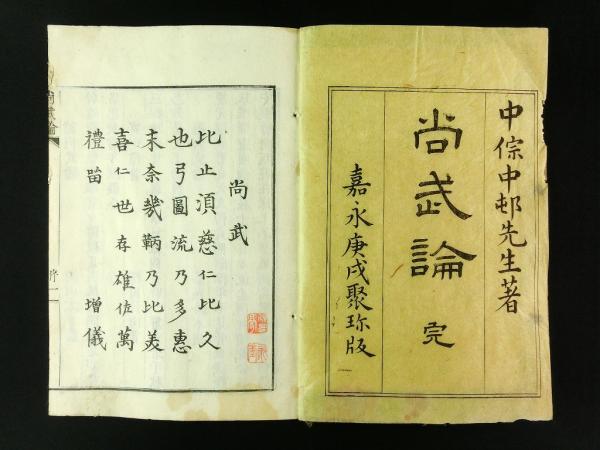 中倧中邨先生著
尚武論 完
嘉永庚戌聚珍版
尚武
比止須慈仁比久
也弓圖流乃多惠
末奈幾鞆乃比美
喜仁世存雄佐萬
禮畄 増儀
尚武論
序一